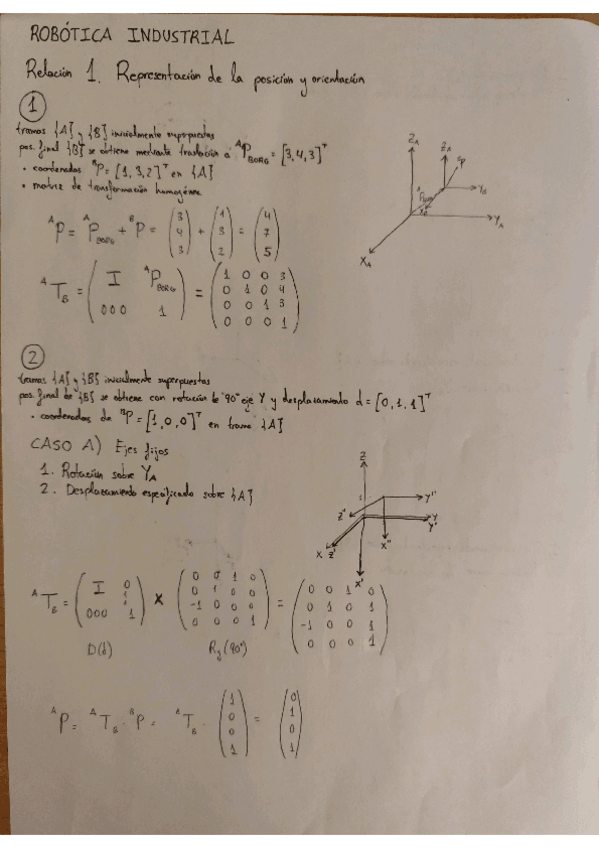 ROBÓTICA INDUSTRIAL
Relación 1. Representación de la posición y orientación
1
tramas {A} y {B} inicialmente superpuestas
pos. final {B} se obtiene mediante traslación a ᴬP_BORG = [3,4,3]ᵀ
• coordenadas ᴮP = [1,3,2]ᵀ en {A}
• matriz de transformación homogénea
Z_A Z_B ᴮP Y_B Y_A X_B X_A
ᴬP = ᴬP_BORG + ᴮP = (3 4 3) + (1 3 2) = (4 7 5)
ᴬT_B = (I ᴬP_BORG
000 1) = (1 0 0 3
0 1 0 4
0 0 1 3
0 0 0 1)
2
tramas {A} y {B} inicialmente superpuestas
pos. final de {B} se obtiene con rotación de 90° eje Y y desplazamiento d = [0,1,1]ᵀ
• coordenadas de ᴮP = [1,0,0]ᵀ en trama {A}
CASO A) Ejes fijos
1. Rotación sobre Y_A
2. Desplazamiento especificado sobre {A}
Z Y'' Z'' Y Y' X'' X Z' X'
ᴬT_B = (I 0
1
1
000 1) x (0 0 1 0
0 1 0 0
-1 0 0 0
0 0 0 1) = (0 0 1 0
0 1 0 1
-1 0 0 1
0 0 0 1)
D(d) (90°)
ᴬP = ᴬT_B · ᴮP = ᴬT_B · (1 0 0 1) = (0 1 0 1)